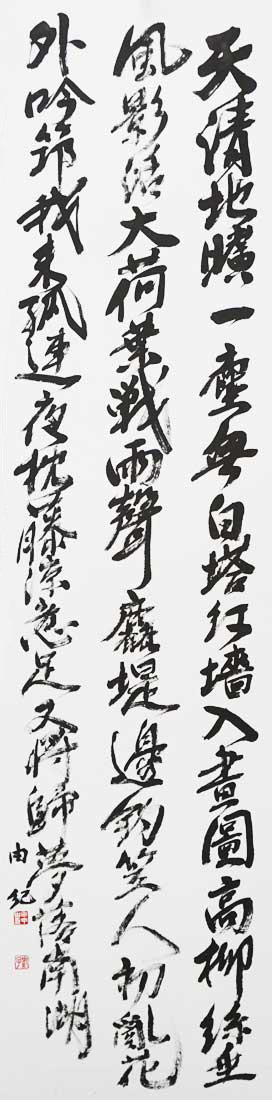 天清地曠一塵無白塔紅墻入畫圖高柳絲垂
風影大荷葉戰雨聲麤堤邊釣笠人初亂花
外吟筇我未孤連夜枕藤涼意足又將歸夢落南湖
由紀